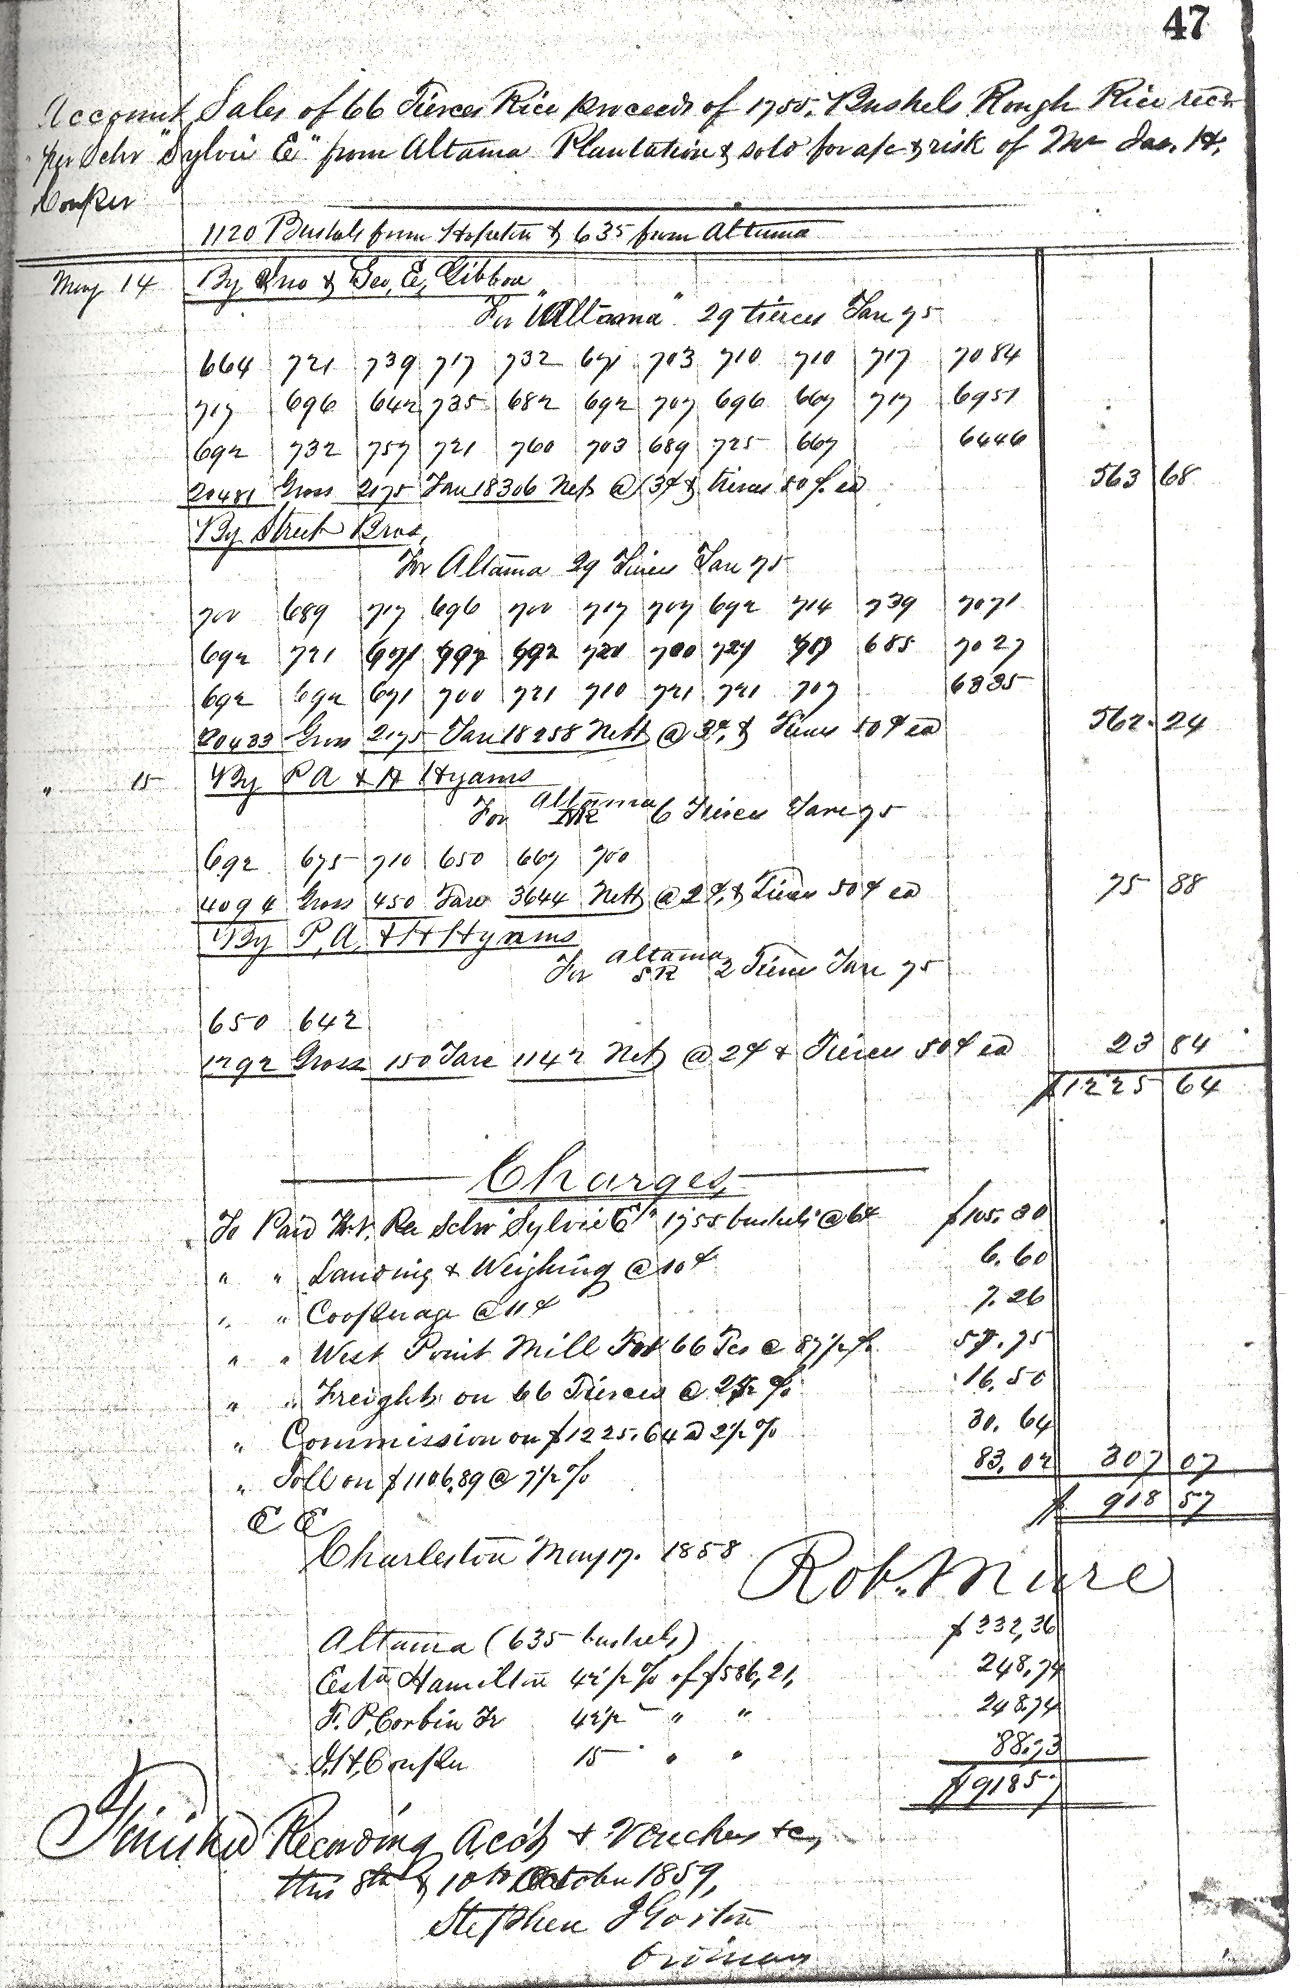 47
Account Sales of 66 Tierces Rice proceeds of 1755. Bushels Rough Rice recd
per Schr "Sylvie E" from Altama Plantation & sold for a/c & risk of Mr Jas. H.
Couper
1120 Bushels from Hopeton & 635 from Altama
May 14 By Jno & Geo, E, Gibbon
For "Altama" 29 tierces Tare 75
664 721 739 717 732 671 703 710 710 717 7084
717 696 642 735 682 692 707 696 667 717 6951
692 732 757 721 760 703 689 725 667 6446
20481 Gross 2175 Tare 18306 Net @ 3¢ & tierces 50¢ ea 563 68
By Street Bros,
For Altama 29 Tierces Tare 75
700 689 717 696 700 717 707 692 714 739 7071
692 721 685 7027
692 692 671 700 721 710 721 721 707 6335
20433 Gross 2175 Tare 18258 Nett @ 3¢, & Tierces 50¢ ea 562. 24
" 15 By P A & H Hyams
For Altama 6 Tierces Tare 75
692 675 710 650 667 700
4094 Gross 450 Tare 3644 Nett @ 2¢, & Tierces 50¢ ea 75 88
By P, A, & H Hyams
For Altama SR 2 Tierces Tare 75
650 642
1292 Gross 150 Tare 1142 Net @ 2¢ & Tierces 50¢ ea 23 84
$1225 64
Charges,
To Paid Frt. Per Schr "Sylvie E" 1755 bushels @ 6¢ $105.30
" " Landing & Weighing @ 10¢ 6.60
" " Cooperage @ 11¢ 7.26
" " West Point Mill For 66 Tcs @ 87½¢ 57.75
" " Freight on 66 Tierces @ 16.50
" Commission on $1225.64 @ 2½% 30.64
" Toll on $1106.89 @ 7½% 83.02 307 07
$ 918 57
E E
Charleston May 17. 1858
Rob. Mure
Altama (635 bushels) $332,36
Estn Hamilton 42½% of $586,21, 248,74
F. P. Corbin Jr 42½ " " 248.74
J. H, Couper 15 " " 88.73
$918 57
Finished Recording Accts & Vouchers &c,
this 8th & 10th October 1859,
Stephen J Gorton
Ordinary